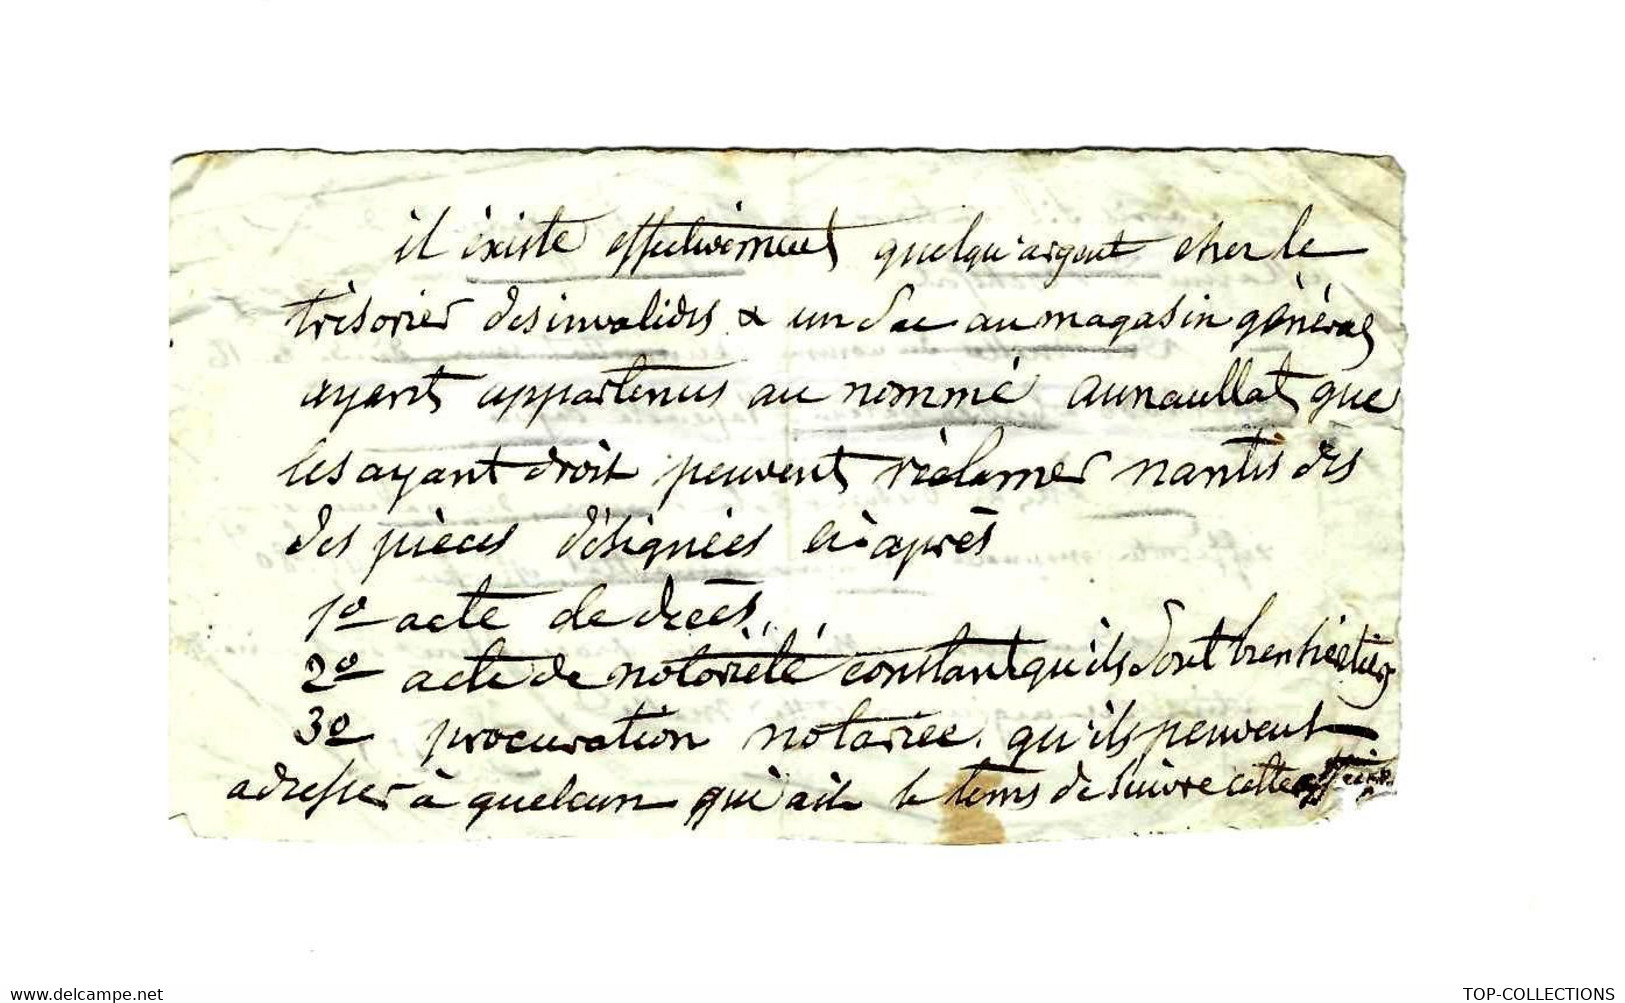 il èxiste effectivement quelqu'argent chez le
trèsorier des invalides & un sac au magasin général
ayant appartenus au nommé aunaullat que
les ayant droit peuvent rèclamer nantis des
des pièces désignées ci-après
1º acte de decès
2º acte de notoriété constant qu'ils sont héritiers
3º procuration notariée. qu'ils peuvent
adresser à quelcun qui ait le tems de suivre cette affaire
www.delcampe.net
TOP-COLLECTIONS